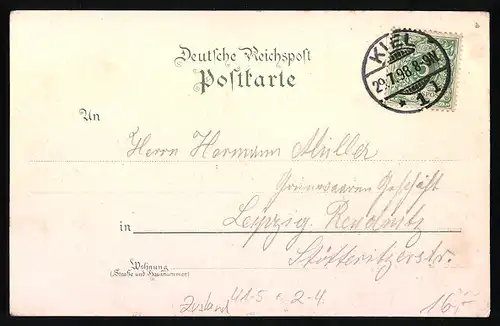 Deutsche Reichspost
Postkarte
KIEL
29.7.98.8-9N.
* 1 I
5
An
Herrn Hermann Müller
Grünwaaren Geschäft
in Leipzig. Reudnitz
Stötteritzerstr.
Wohnung
(Straße und Hausnummer)
2-4.
16,-